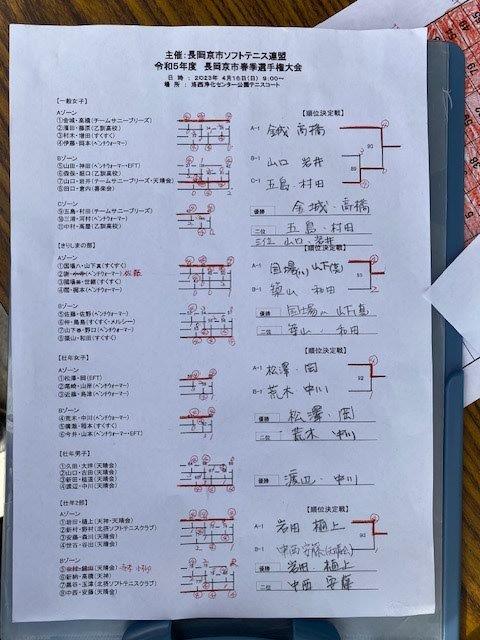 主催：長岡京市ソフトテニス連盟
令和5年度 長岡京市春季選手権大会
日 時 ： 2023年 4月16日(日) 9:00～
場 所 ： 洛西浄化センター公園テニスコート
【一般女子】
【順位決定戦】
Aゾーン
①金城・高橋(チームサニーブリーズ)
②濱田・藤原(乙訓高校)
③村木・増田(すくすく)
④伊藤・岡本(ベンチウォーマー)
A-1 金城 高橋
Bゾーン
⑤山田・神田(ベンチウォーマー・EFT)
⑥森保・堀口(乙訓高校)
⑦山口・岩井(チームサニーブリーズ・天晴会)
⑧田口・倉内(喜楽会)
B-1 山口 岩井
C-1 五島 村田
Cゾーン
⑨五島・村田(チームサニーブリーズ)
⑩三浦・河村(ベンチウォーマー)
⑪中村・高屋(乙訓高校)
優勝 金城・高橋
二位 五島・村田
三位 山口・岩井
【きりしまの部】
【順位決定戦】
Aゾーン
①国場八・山下真(すくすく)
④堀・梶本(ベンチウォーマー)
A-1 国場八 山下真
Bゾーン
⑤佐藤・佐野(ベンチウォーマー)
⑥仲・鳥島(すくすく・メルシー)
⑧築山・和田(すくすく)
B-1 築山 和田
優勝 国場八 山下真
二位 築山・和田
【壮年女子】
【順位決定戦】
Aゾーン
①松澤・岡(EFT)
②尾崎・山岸(ベンチウォーマー)
③近藤・島津(ベンチウォーマー)
A-1 松澤・岡
B-1 荒木 中川
Bゾーン
④荒木・中川(ベンチウォーマー)
⑤廣瀬・稲本(すくすく)
⑥今井・山本(ベンチウォーマー・EFT)
優勝 松澤・岡
二位 荒木 中川
【壮年男子】
①久田・大坪(天晴会)
②山口・古田(天晴会)
③新田・植道(天晴会)
④渡辺・中川(天晴会)
優勝 渡辺・中川
【壮年2部】
【順位決定戦】
Aゾーン
①岩田・樋上(天神・天晴会)
②新村・野村(北摂ソフトテニスクラブ)
③安藤・森川(天晴会)
④世古・谷出(天晴会)
A-1 岩田 樋上
B-1 中西 安藤(天晴会)
Bゾーン
⑥新納・高橋(天神)
⑦黒谷・玉津(北摂ソフトテニスクラブ)
⑧中西・安藤(天晴会)
優勝 岩田・樋上
二位 中西 安藤